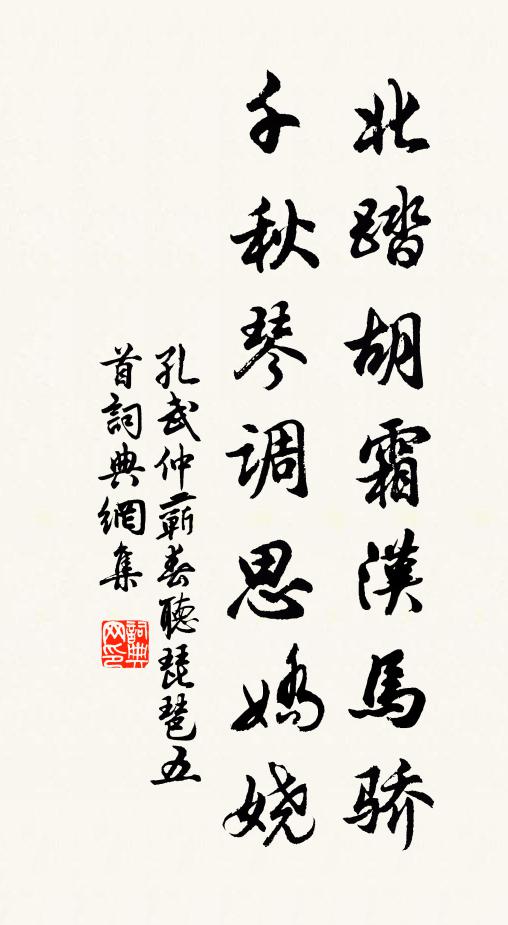 北踏胡霜漢馬骄
千秋琴调思嬌娆
孔武仲蘄春聽琵琶五
首詞典網集
詞典网印